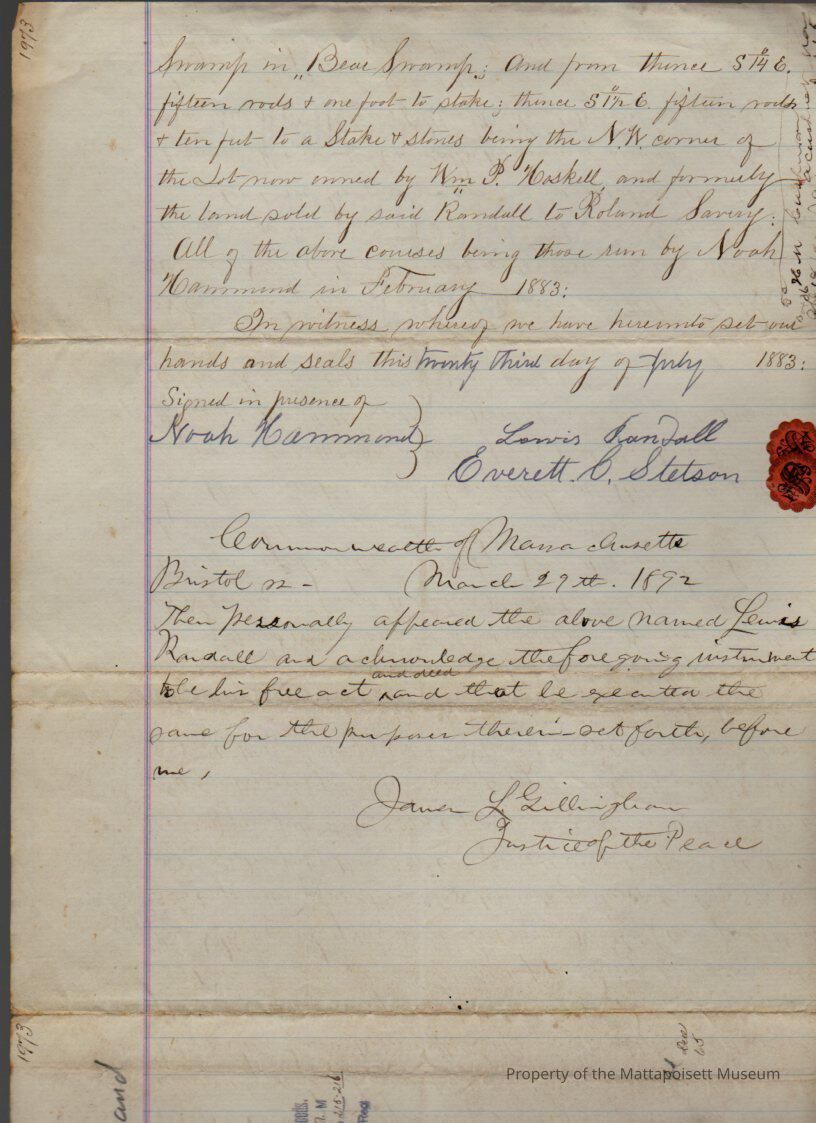 1973
Swamp in "Bear Swamp"; And from thence S 14° E.
fifteen rods & one foot to stake; thence S 17½° E. fifteen rods
& ten feet to a Stake & stones being the N.W. corner of
the Lot now owned by Wm P. Haskell, and formerly
the land sold by said Randall to Roland Savery:
All of the above courses being those run by Noah
Hammond in February 1883:
In witness whereof we have hereunto set our
hands and seals this twenty third day of July 1883:
Signed in presence of
Noah Hammond } Lewis Randall
Everett C. Stetson
Commonwealth of Massachusetts
Bristol ss - March 29th. 1892
Then personally appeared the above named Lewis
Randall and acknowledge the foregoing instrument
to be his free act and deed and that he executed the
same for the purposes therein set forth, before
me,
James L. Gillingham
Justice of the Peace
1973
and
215-216
65
Property of the Mattapoisett Museum